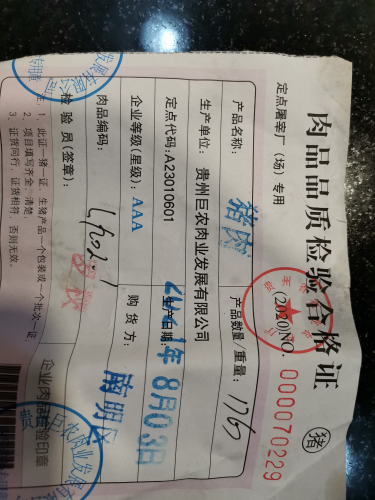 肉品品质检验合格证
猪
定点屠宰厂（场）专用
(2020)NO. 0000070229
产品名称：猪肉
产品数量/重量：
生产单位：贵州巨农肉业发展有限公司
定点代码：A23010601
生产日期：2021年8月03日
企业等级(星级)：AAA
购货方：南明区
肉品编码：
检验员(签章)：
企业肉品检验印章
注：1、此证一猪一证，生猪产品一个包装或一个批次一证。
2、项目填写齐全、清楚。
3、证货同行，证货相符，否则无效。